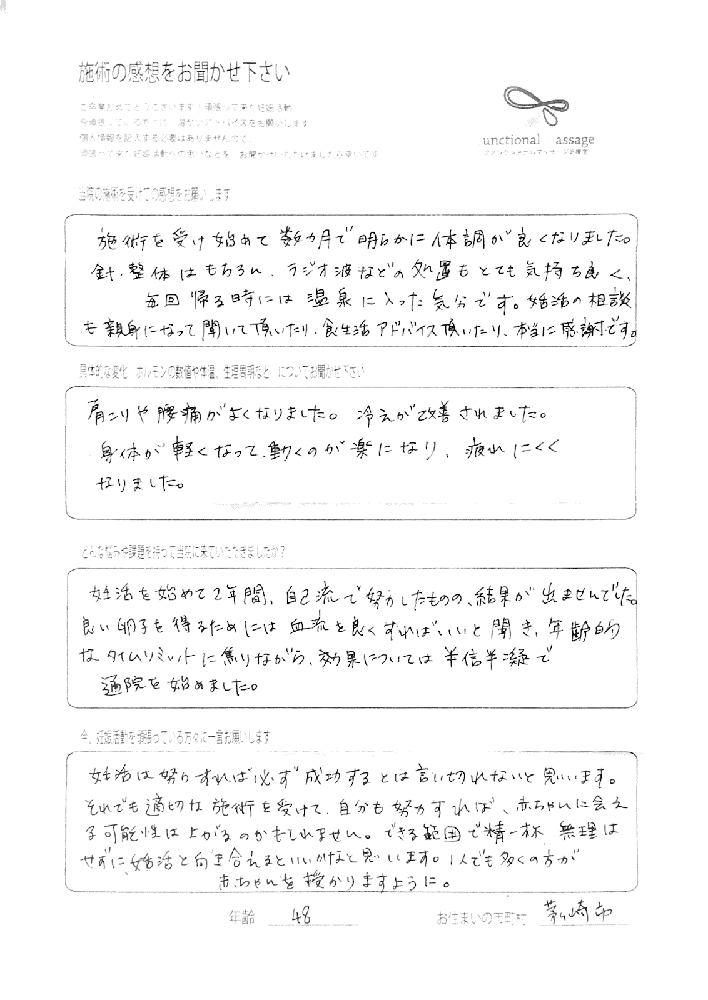 施術の感想をお聞かせ下さい
ご卒業おめでとうございます！頑張って来た妊娠活動
今頑張っている方々に、温かいアドバイスをお願いします
個人情報を記入する必要はありませんので
頑張って来た妊娠活動への思いなどを、お聞かせいただけましたら幸いです
unctional assage
ファンクショナルマッサージ治療室
当院の施術を受けての感想をお願いします
施術を受け始めて数ヵ月で明らかに体調が良くなりました。
針・整体はもちろん、ラジオ波などの処置もとても気持ち良く、
毎回帰る時には温泉に入った気分です。妊活の相談
も親身になって聞いて頂いたり、食生活アドバイス頂いたり、本当に感謝です。
具体的な変化 ホルモンの数値や体温、生理周期など についてお聞かせ下さい
肩こりや腰痛がよくなりました。 冷えが改善されました。
身体が軽くなって、動くのが楽になり、疲れにくく
なりました。
どんな悩みや課題を持って当院に来ていただきましたか？
妊活を始めて2年間、自己流で努力したものの、結果が出ませんでした。
良い卵子を得るためには血流を良くすればいいと聞き、年齢的
なタイムリミットに焦りながら、効果については半信半凝で
通院を始めました。
今、妊娠活動を頑張っている方々に一言お願いします
妊活は努力すれば必ず成功するとは言い切れないと思います。
それでも適切な施術を受けて、自分も努力すれば、赤ちゃんに会え
る可能性は上がるのかもしれません。できる範囲で精一杯、無理は
せずに、妊活と向き合えるといいかなと思います。1人でも多くの方が
赤ちゃんを授かりますように。
年齢 48 お住まいの市町村 茅ヶ崎市